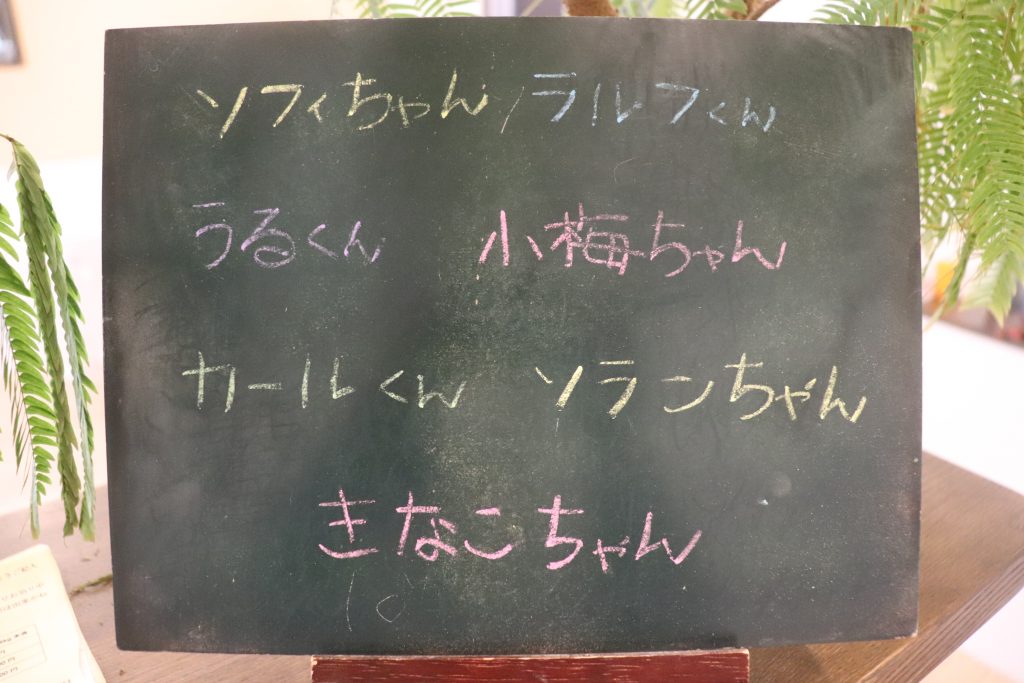 ソフィちゃん/ラルフくん
うるくん 小梅ちゃん
カールくん ソランちゃん
きなこちゃん